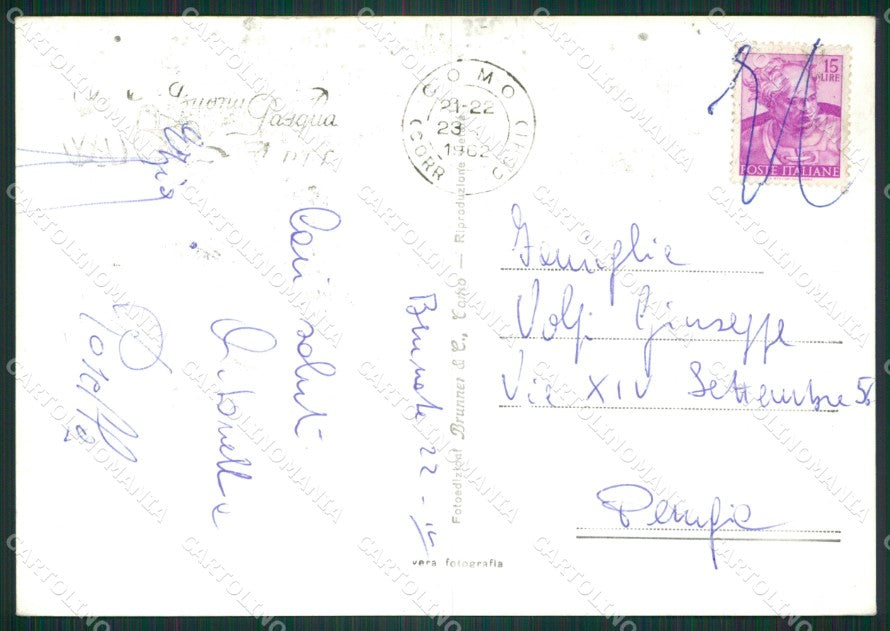 Buona Pasqua
COMO
21-22
23
1962
(CORR
15
LIRE
POSTE ITALIANE
Cari saluti
Antonella
Brunate 22 - IV
Fotoedizioni Brunner & C., Como — Riproduzione vietata
vera fotografia
Famiglia
Volpi Giuseppe
Via XIV Settembre 56
Perugia
CARTOLINOMANIA